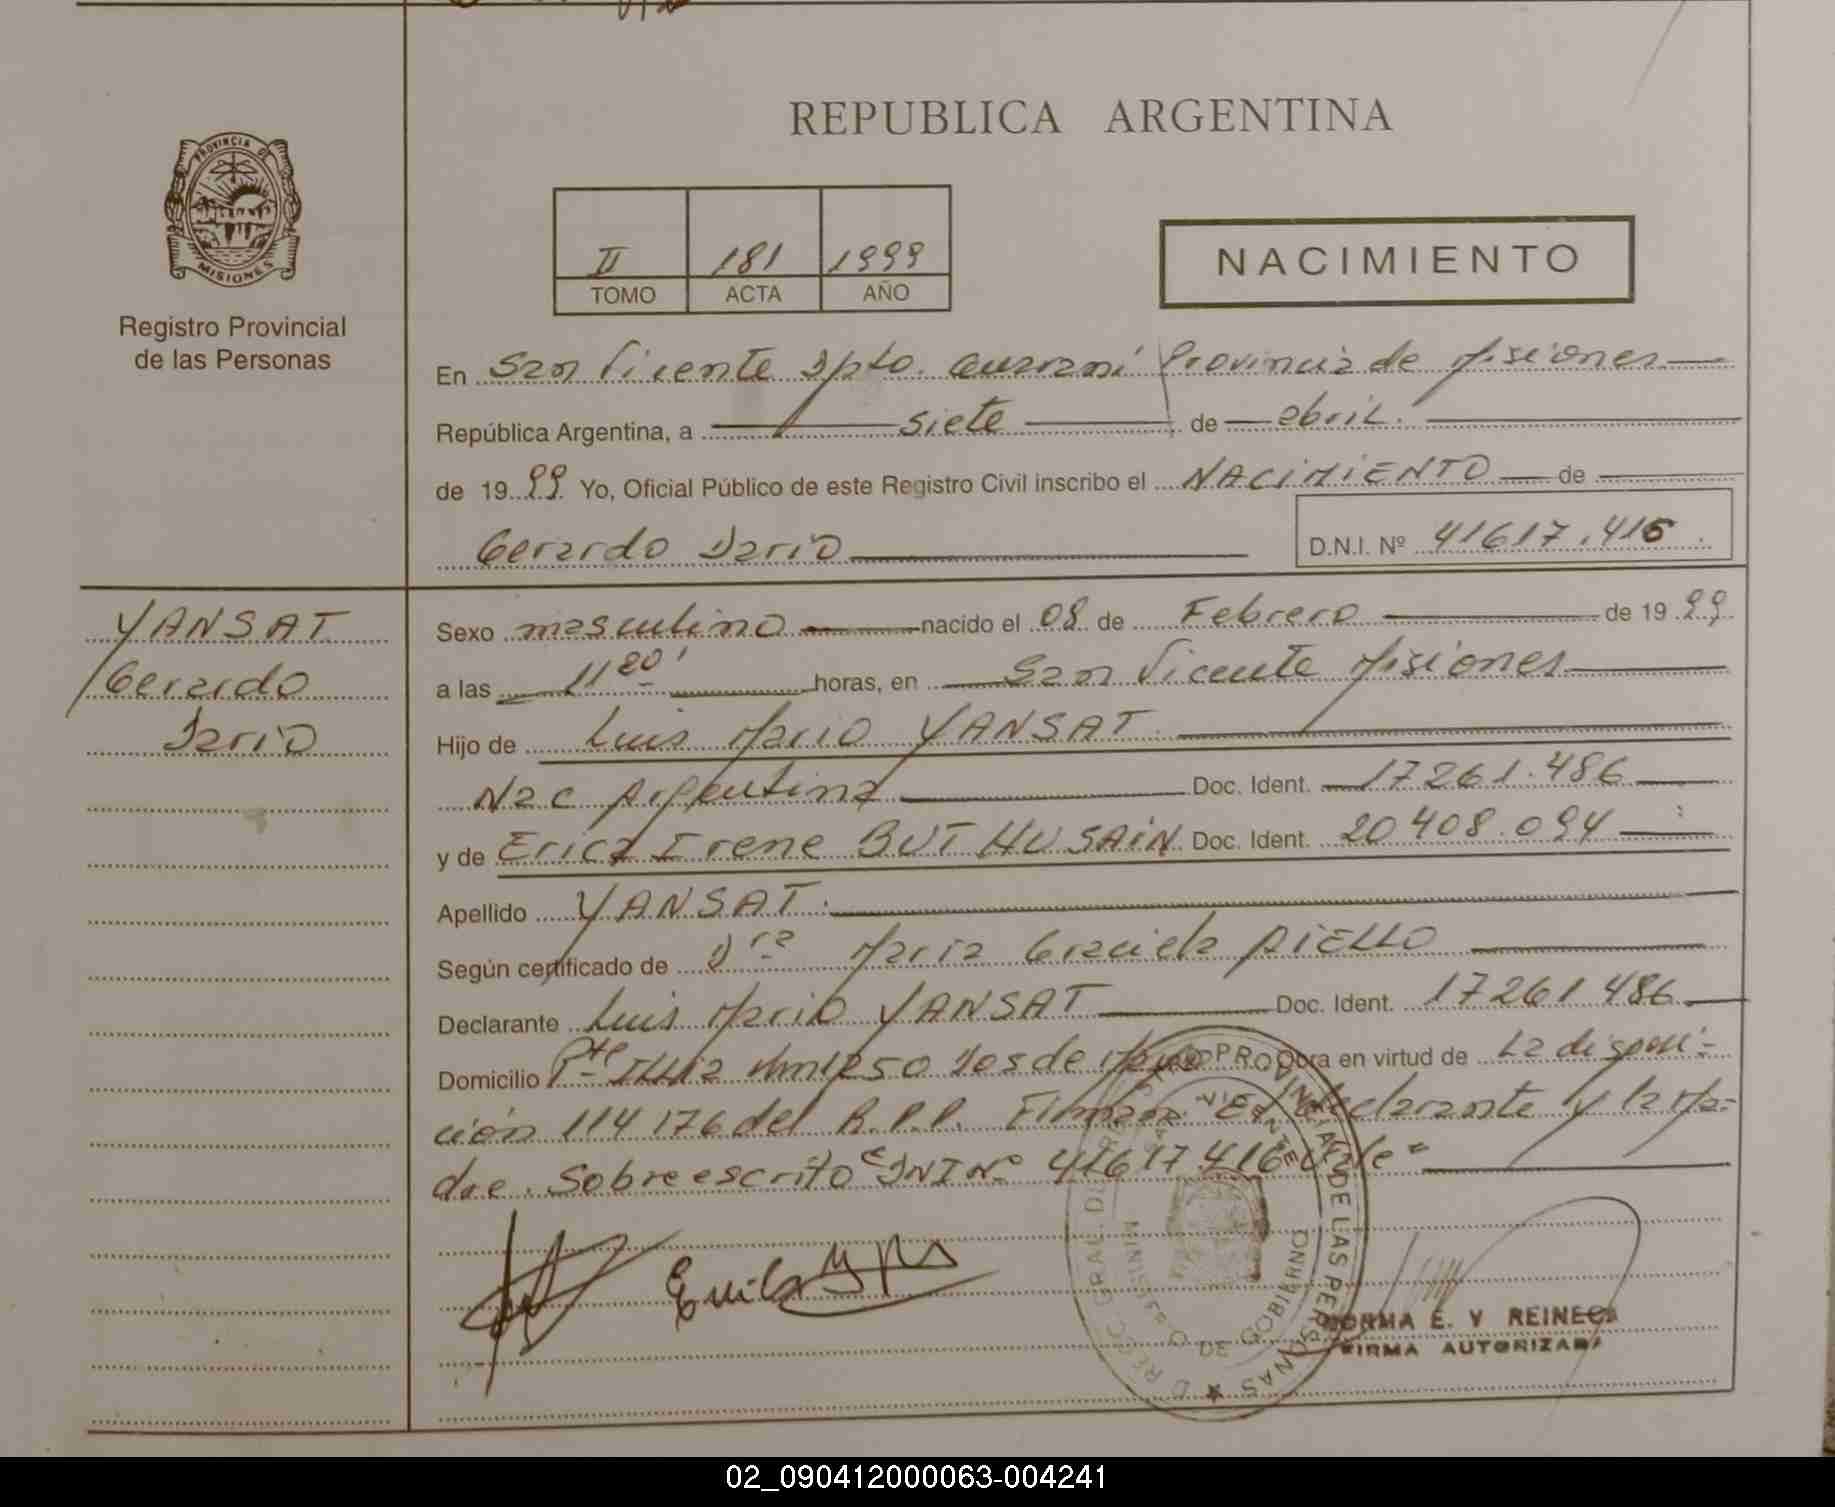 REPUBLICA ARGENTINA
PROVINCIA DE
MISIONES
Registro Provincial
de las Personas
II 181 1999
TOMO ACTA AÑO
NACIMIENTO
En San Vicente Dpto. Guaraní Provincia de Misiones
República Argentina, a siete de abril.
de 1999 Yo, Oficial Público de este Registro Civil inscribo el NACIMIENTO de
Gerardo Dario D.N.I. Nº 41617.416
YANSAT
Gerardo
Dario
Sexo masculino nacido el 08 de Febrero de 1999
a las 11 20' horas, en San Vicente Misiones
Hijo de Luis Mario YANSAT
Nac Argentina Doc. Ident. 17261.486
y de Erica Irene BUT HUSAIN Doc. Ident. 20408.094
Apellido YANSAT.
Según certificado de Dra Maria Graciela AIELLO
Declarante Luis Mario YANSAT Doc. Ident. 17261.486
Domicilio Pte Illia 1250 Dos de Mayo Obra en virtud de La disposi-
ción 114 176 del R.P.P. Firman El declarante y la ma-
dre. Sobreescrito "DNI Nº 41617.416 Vale"
DIREC. GRAL. DEL REG. PROVINCIAL DE LAS PERSONAS
SAN VICENTE
MINISTERIO DE GOBIERNO
NORMA E. V REINECA
FIRMA AUTORIZADA
02_090412000063-004241